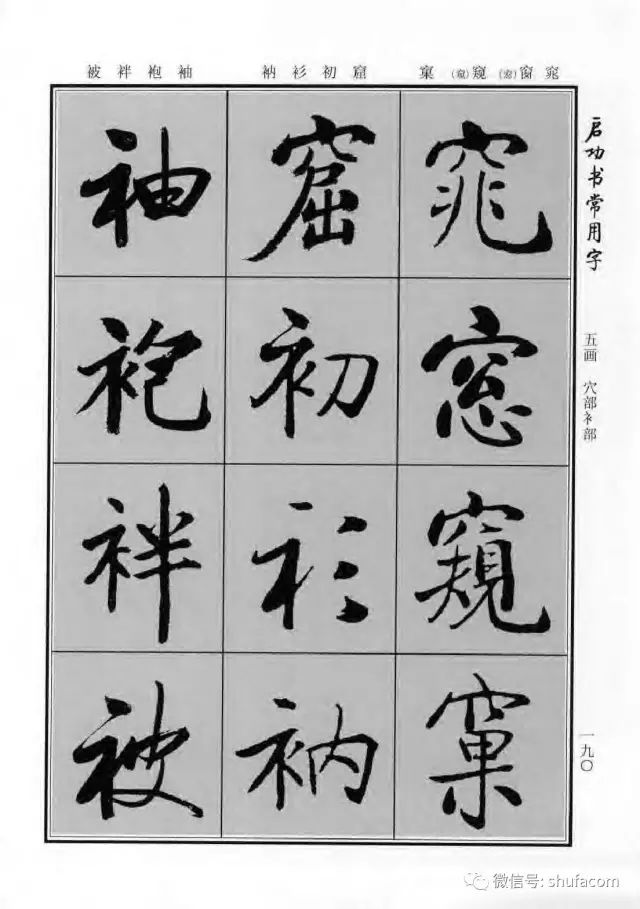 被袢袍袖 衲衫初窟 窠窺(窥)窗(窓)窕
启功书常用字
五画 穴部衤部
一九〇
窕
窓
窺
窠
窟
初
衫
衲
袖
袍
袢
被
微信号: shufacom